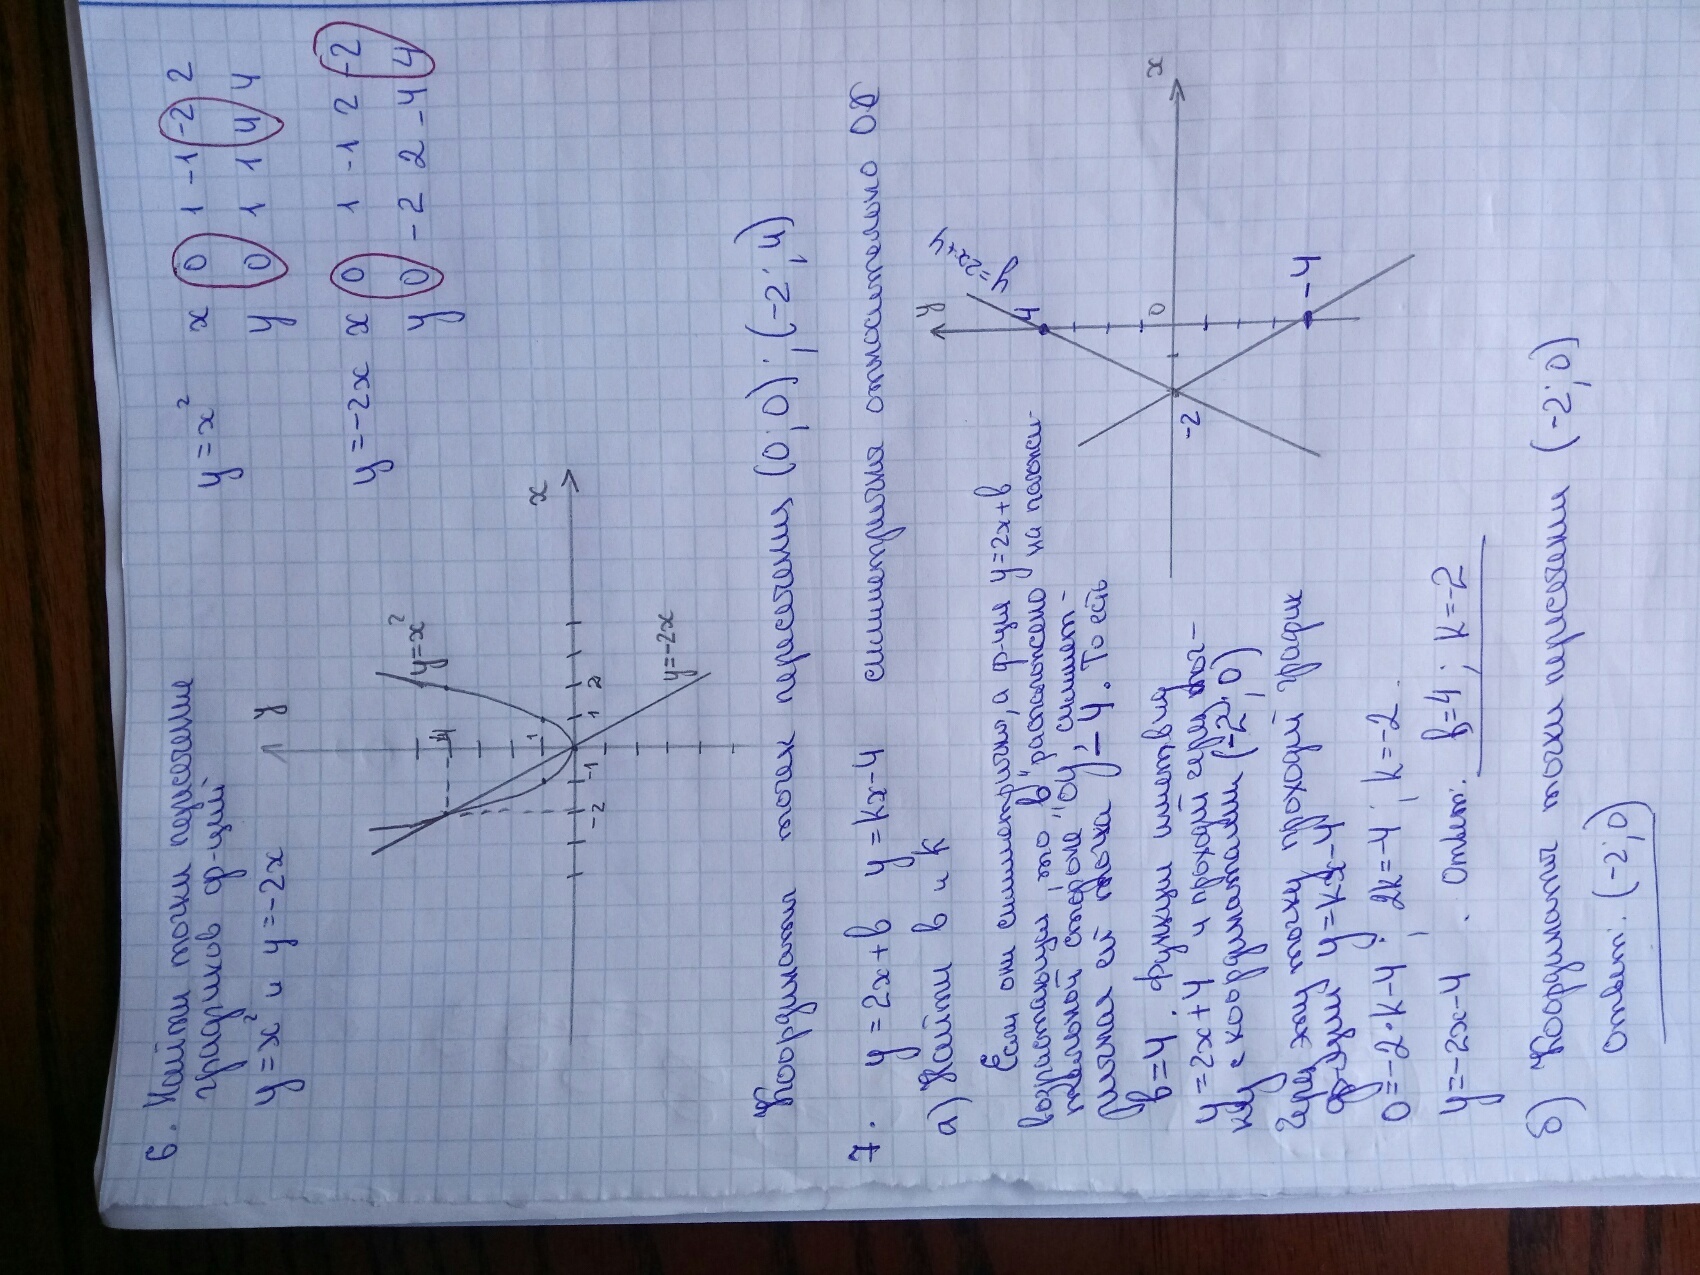 6. Найти точки пересечение
графиков ф-ций
y = x² и y = -2x
y = x² x 0 1 -1 -2 2
y 0 1 1 4 4
y = -2x x 0 1 -1 2 -2
y 0 -2 2 -4 4
y
x
y=x²
y=-2x
4
1
-2 -1 1 2
Координаты точек пересечения (0; 0); (-2; 4)
7. y = 2x + в y = kx - 4 симметрична относительно ОХ
а) Найти в и к
Если они симметрично, а ф-ция y = 2x + в
возрастающая то "в" расположено на положи-
тельной стороне "OY", симмет-
ричная ей точка y = -4. То есть
в = 4. Функции имеет вид
y = 2x + 4 и проходит через точ-
ку с координатами (-2; 0)
Через эту точку проходит график
ф-кции y = kx - 4
0 = -2·k - 4; 2k = -4; k = -2.
y = -2x - 4. Ответ: в = 4; k = -2
y
x
y=2x+4
4
0
-2
-4
б) Координаты точки пересечения (-2; 0)
Ответ: (-2; 0)